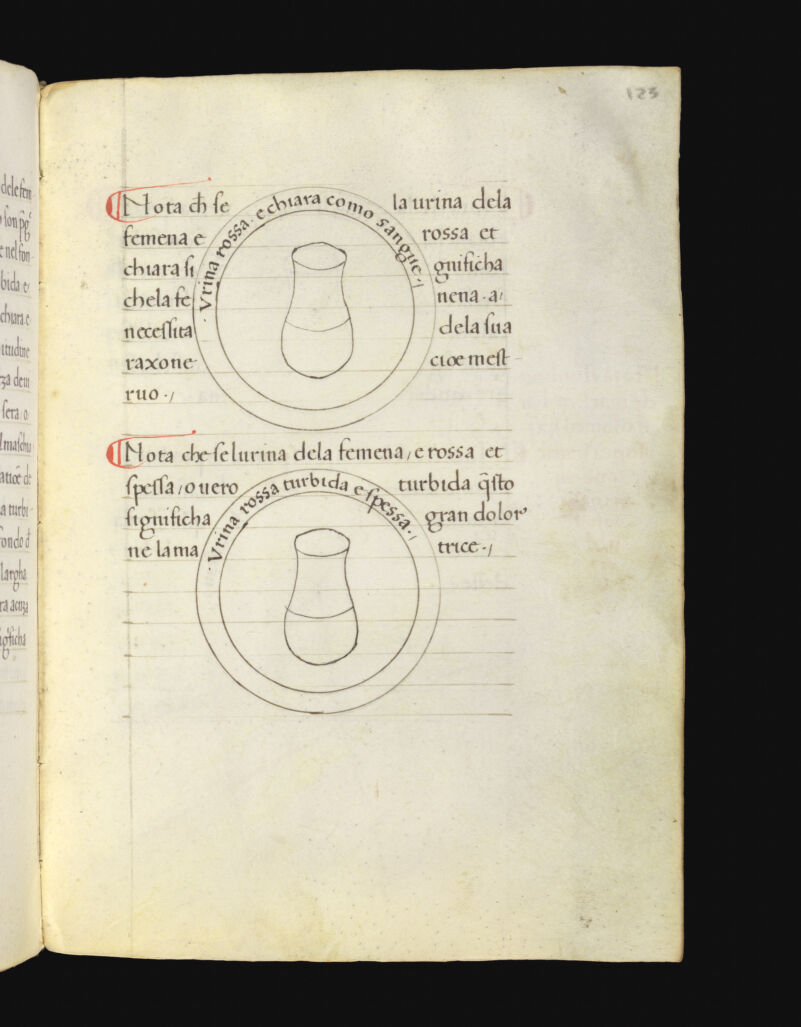 123
Nota ch̄ se la urina dela
femena e rossa et
chiara si gnificha
che la fe nena · a/
necessita dela sua
raxone cioe mest
ruo ·/
· Urina rossa · e chiara como sangue ·/
Nota che se lurina dela femena / e rossa et
spessa / o uero turbida q̄sto
significha gran dolor
ne la ma trice ·/
· Urina rossa turbida e spessa ·/